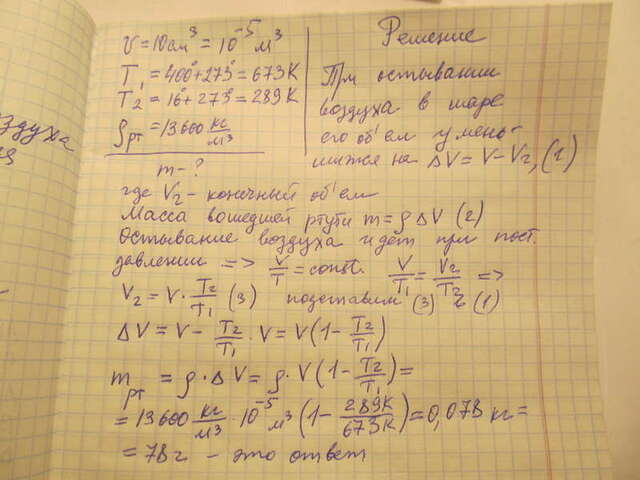 V=10см³=10⁻⁵м³
T₁=400°+273°=673К
T₂=16°+273°=289К
ρрт=13600 кг/м³
m-?
Решение
При остывании
воздуха в шаре
его объем умень-
шится на ΔV=V-V₂, (1)
где V₂ - конечный объем
Масса вошедшей ртути m=ρΔV (2)
Остывание воздуха идет при пост.
давлении => V/T=const. V/T₁=V₂/T₂ =>
V₂=V·T₂/T₁ (3) подставим (3) в (1)
ΔV=V-T₂/T₁·V=V(1-T₂/T₁)
mрт=ρ·ΔV=ρ·V(1-T₂/T₁)=
=13600 кг/м³·10⁻⁵м³(1-289К/673К)=0,078 кг=
=78г - это ответ
здуха